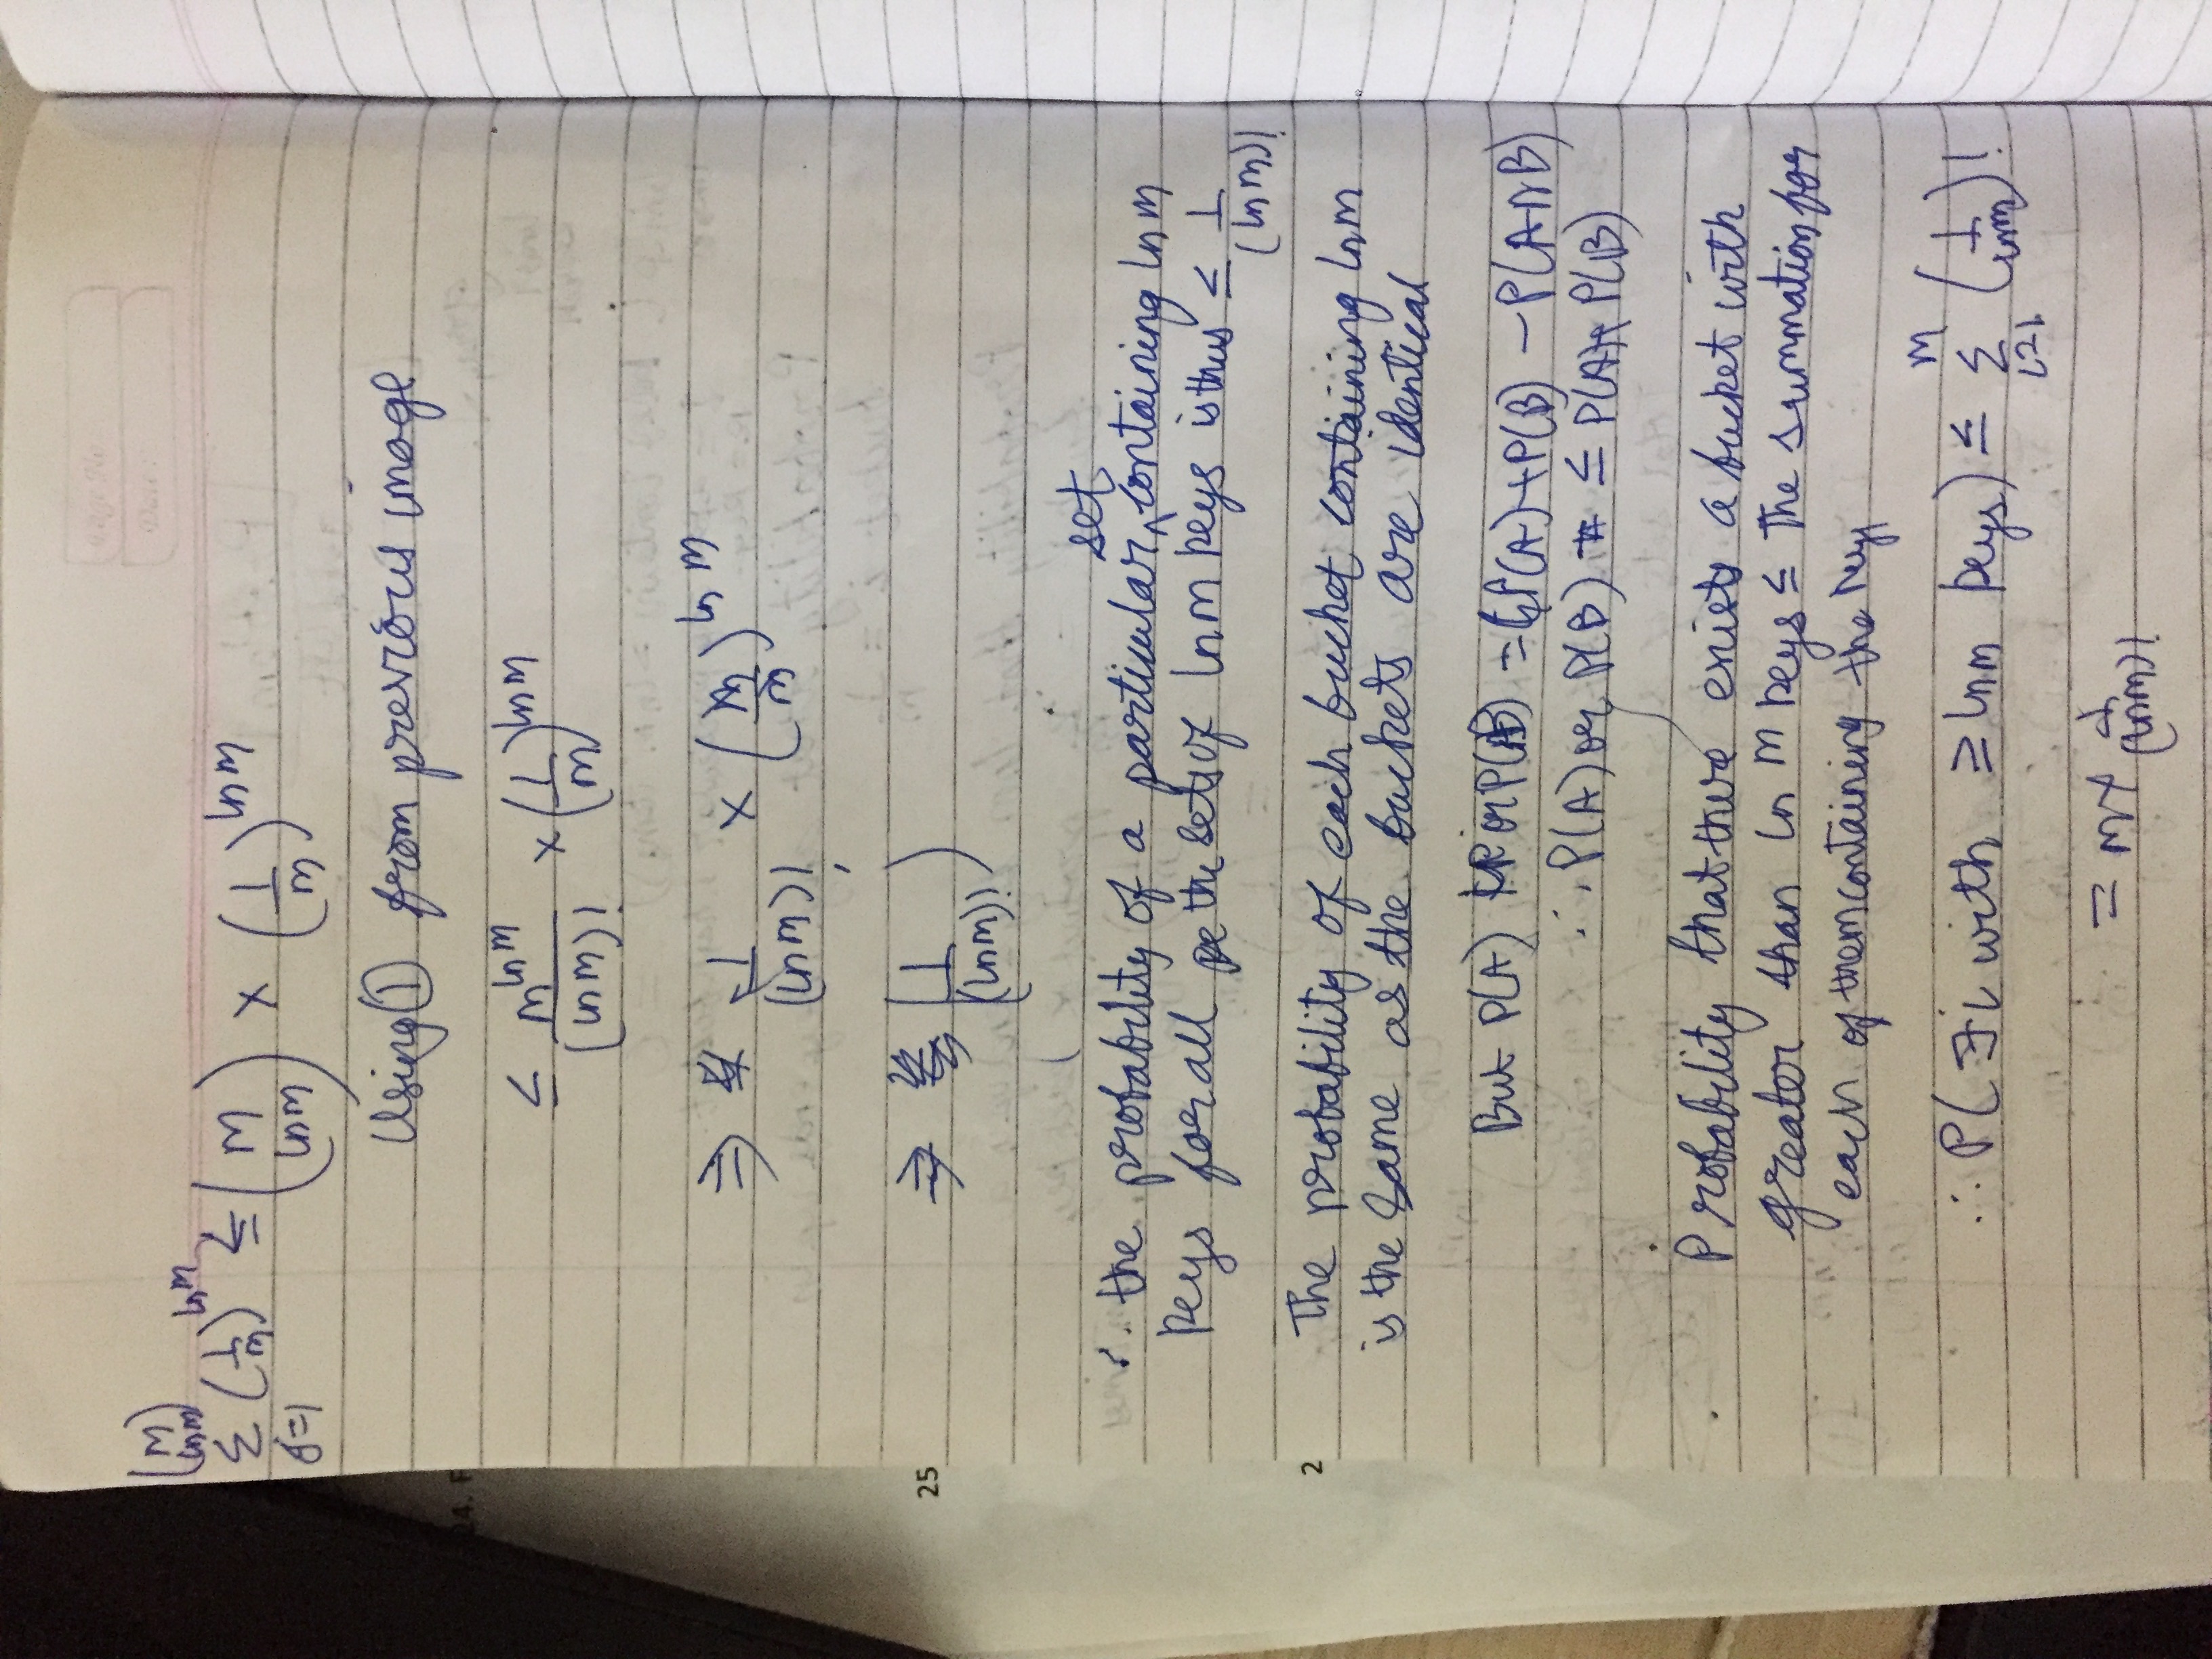 Page No.
Date:
(m ln m)
Σ (1/m)^ln m ≤ (m ln m) × (1/m)^ln m
j=1
Using ① from previous image
≤ m^ln m / (ln m)! × (1/m)^ln m
⇒ 1/(ln m)! × (m/m)^ln m
24. F
25
⇒ (1/(ln m)!)
set
∴ the probability of a particular ^ containing ln m
keys for all the sets of ln m keys is thus ≤ 1/(ln m)!
2
The probability of each bucket containing ln m
is the same as the buckets are identical
But P(A) or P(B) = P(A)+P(B) – P(A∩B)
∴ P(A) or P(B) ≤ P(A)+P(B)
Probability that there exists a bucket with
greater than ln m keys ≤ The summation for
each of them containing the keys
∴ P(∃i with ≥ ln m keys) ≤ m Σ i=1 (1/ln m)!
= m × 1/(ln m)!